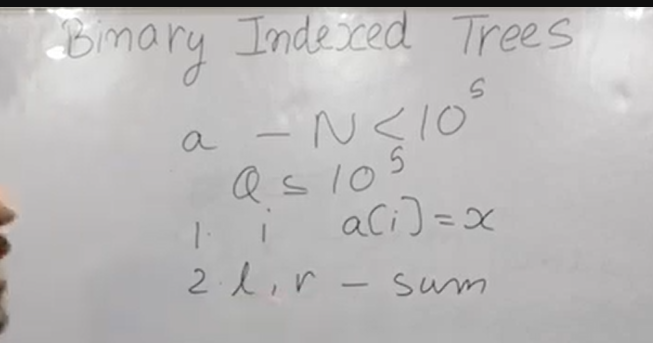 Binary Indexed Trees
a - N < 10^5
Q ≤ 10^5
1. i a[i] = x
2. l, r - sum